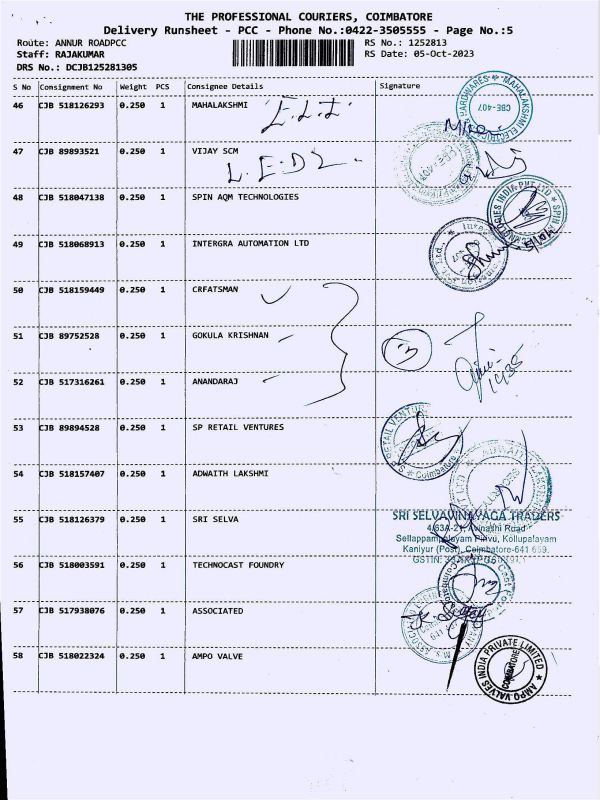 THE PROFESSIONAL COURIERS, COIMBATORE
Delivery Runsheet - PCC - Phone No.:0422-3505555 - Page No.:5
Route: ANNUR ROADPCC RS No.: 1252813
Staff: RAJAKUMAR RS Date: 05-Oct-2023
DRS No.: DCJB125281305
S No Consignment No Weight PCS Consignee Details Signature
46 CJB 518126293 0.250 1 MAHALAKSHMI
HARDWARES ★ MAHALAKSHMI ELECTRI
CBE-407
47 CJB 89893521 0.250 1 VIJAY SCM
48 CJB 518047138 0.250 1 SPIN AQM TECHNOLOGIES
49 CJB 518068913 0.250 1 INTERGRA AUTOMATION LTD
50 CJB 518159449 0.250 1 CRFATSMAN
51 CJB 89752528 0.250 1 GOKULA KRISHNAN
52 CJB 517316261 0.250 1 ANANDARAJ
53 CJB 89894528 0.250 1 SP RETAIL VENTURES
54 CJB 518157407 0.250 1 ADWAITH LAKSHMI
55 CJB 518126379 0.250 1 SRI SELVA
SRI SELVAVINAYAGA TRADERS
Avinashi Road
Kollupalayam
Kaniyur (Post), Coimbatore-641 659.
GSTIN:
56 CJB 518003591 0.250 1 TECHNOCAST FOUNDRY
57 CJB 517938076 0.250 1 ASSOCIATED
58 CJB 518022324 0.250 1 AMPO VALVE
AMPO VALVES INDIA PRIVATE LIMITED ★
COIMBATORE